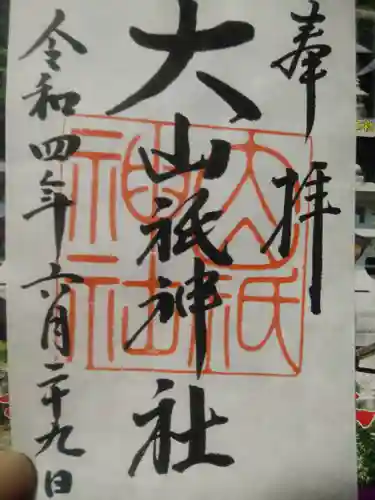 奉拝
大山祇神社
令和四年六月二十九日
大山祇神社